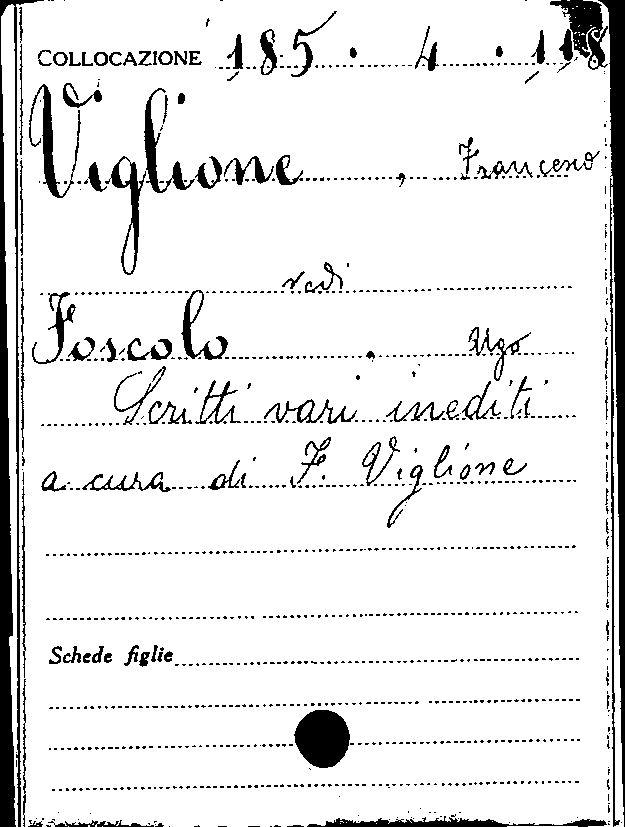 COLLOCAZIONE 185 . 4 . 118
Viglione , Francesco
vedi
Foscolo , Ugo
Scritti vari inediti
a cura di F. Viglione
Schede figlie